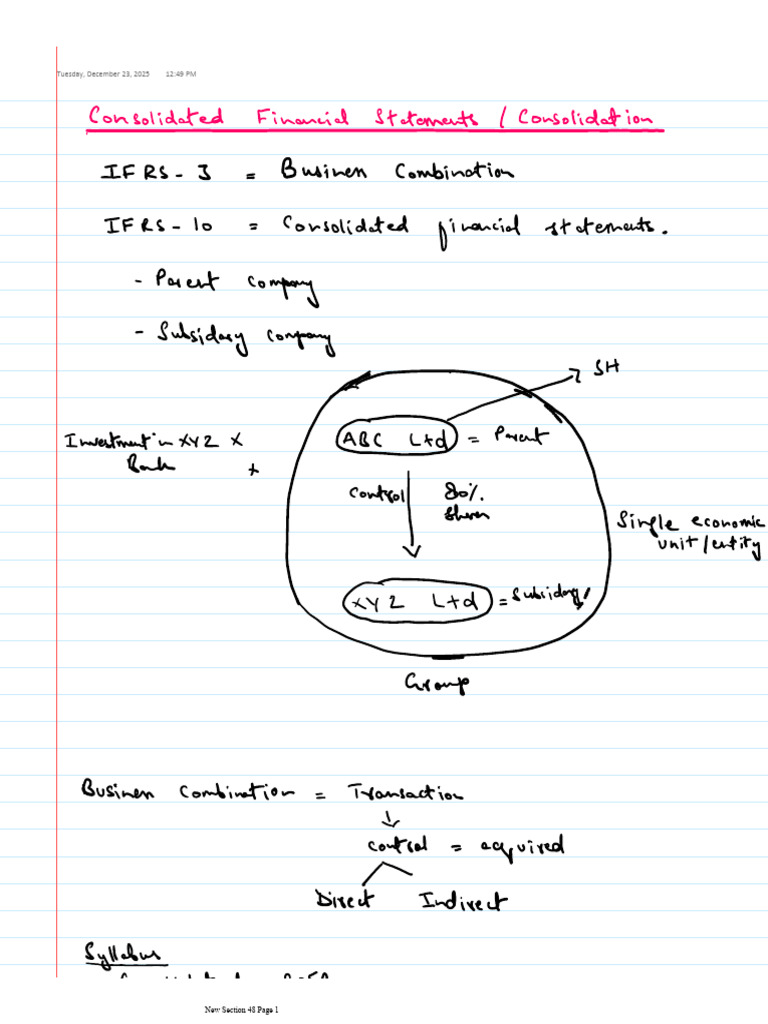 Tuesday, December 23, 2025 12:49 PM
Consolidated Financial Statements / Consolidation
IFRS - 3 = Business Combination
IFRS - 10 = Consolidated financial statements.
- Parent company
- Subsidary company
SH
Investment in XYZ X
Bank +
ABC Ltd = Parent
control 80% shares
Single economic
unit/entity
XYZ Ltd = Subsidary
Group
Business Combination = Transaction
↓
control = acquired
Direct Indirect
Syllabus
New Section 48 Page 1